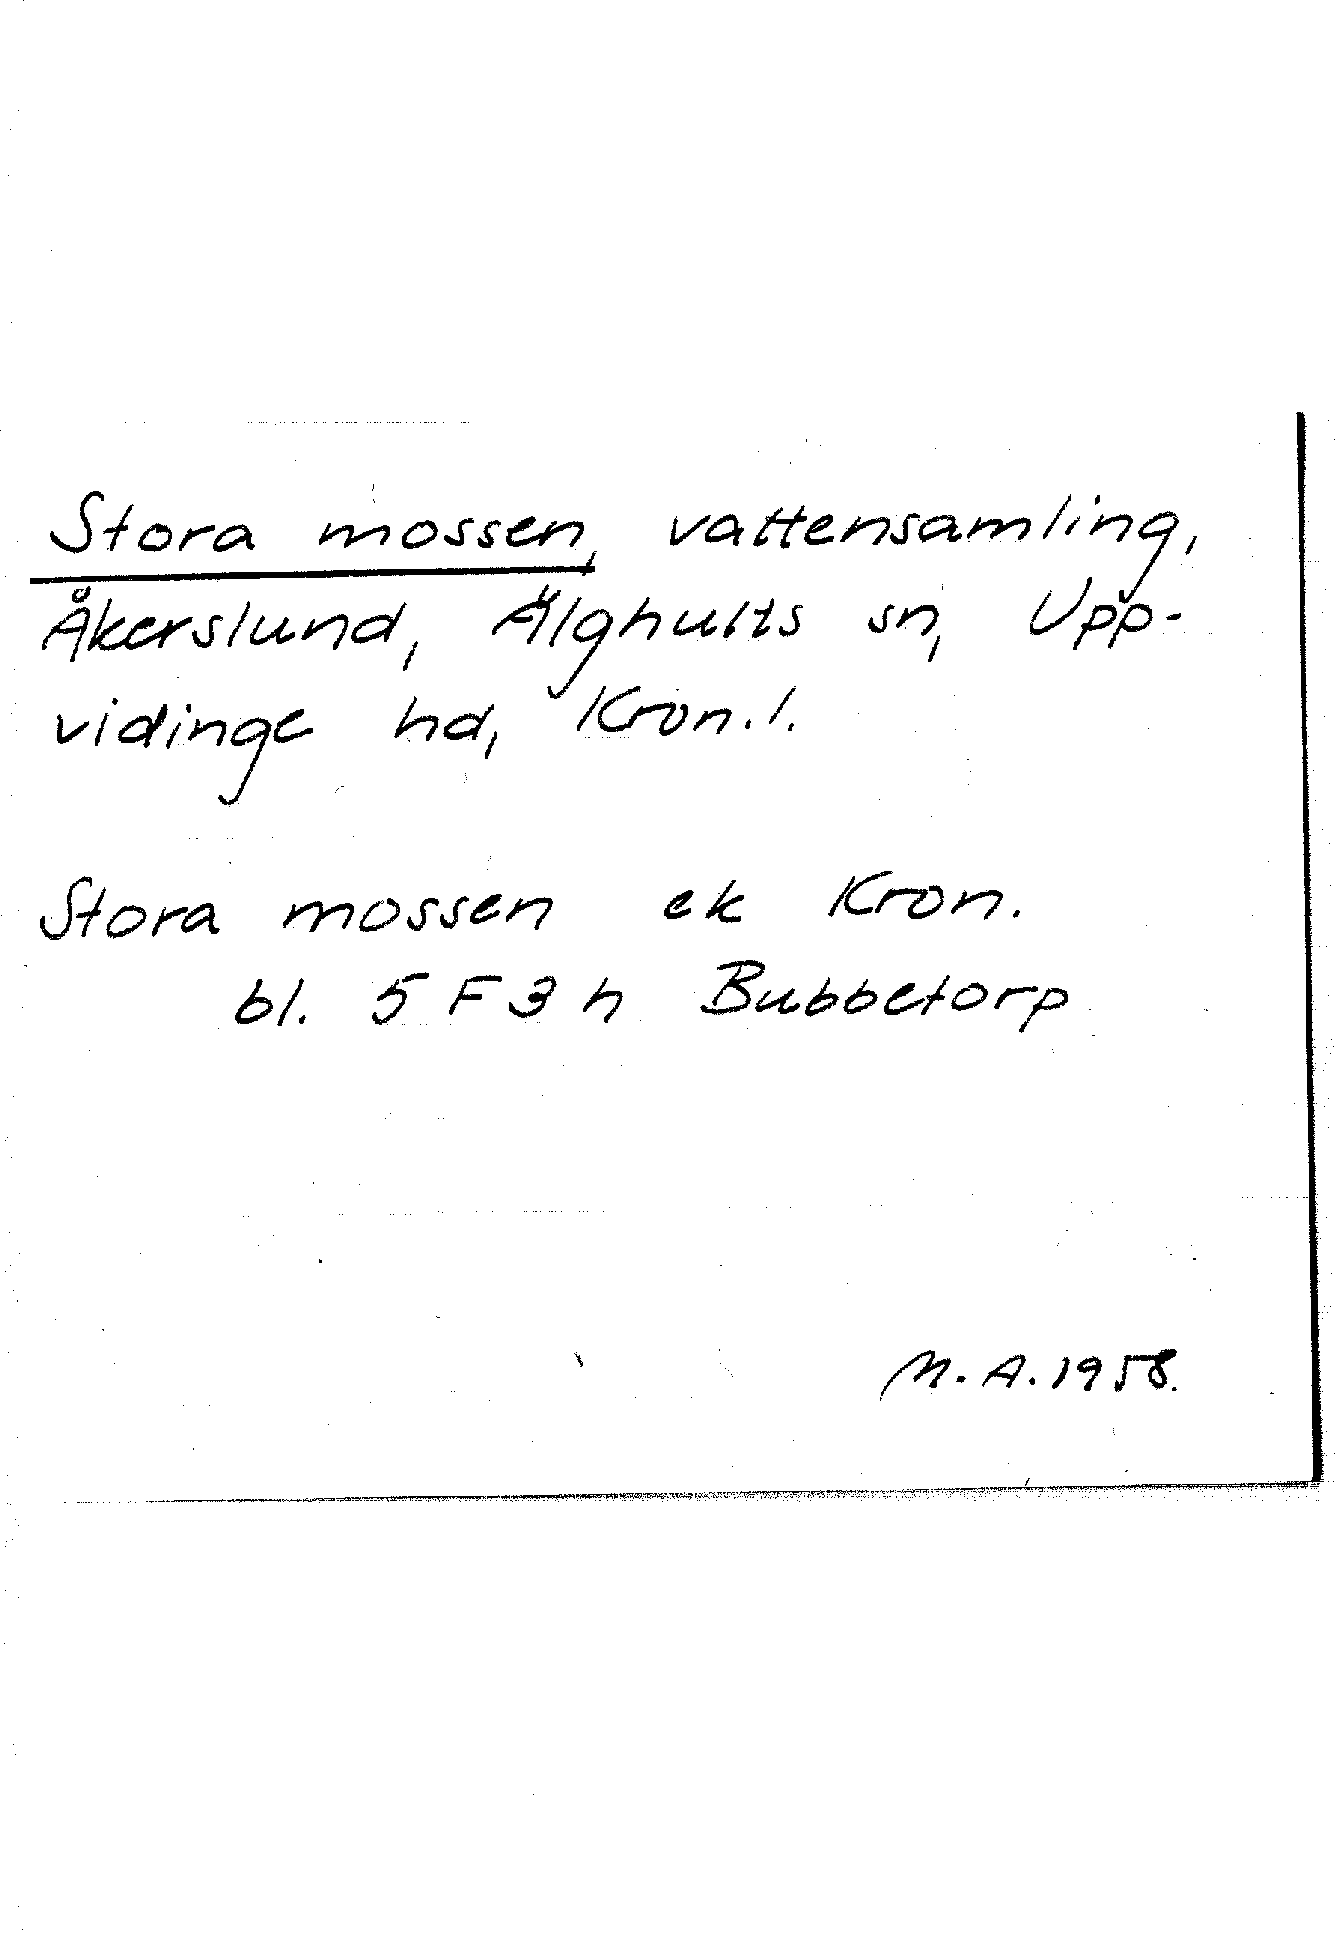 Stora mossen, vattensamling,
Åkerslund, Älghults sn, Upp-
vidinge hd, Kron. l.
Stora mossen ek Kron.
bl. 5 F 3 h Bubbetorp
M. A. 1958.